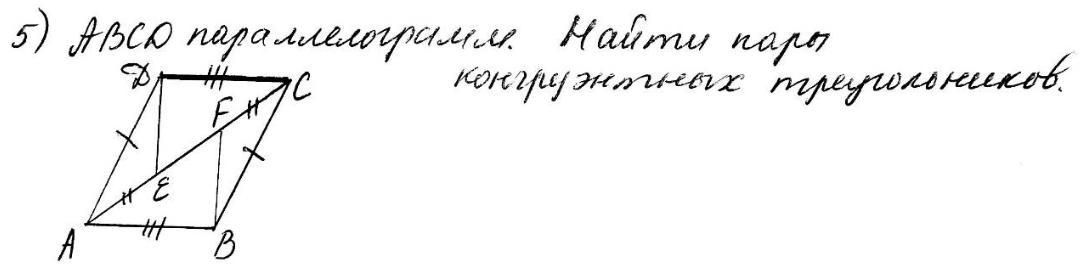 5) ABCD параллелограмм. Найти пары
конгруэнтных треугольников.
D C
F
E
A B